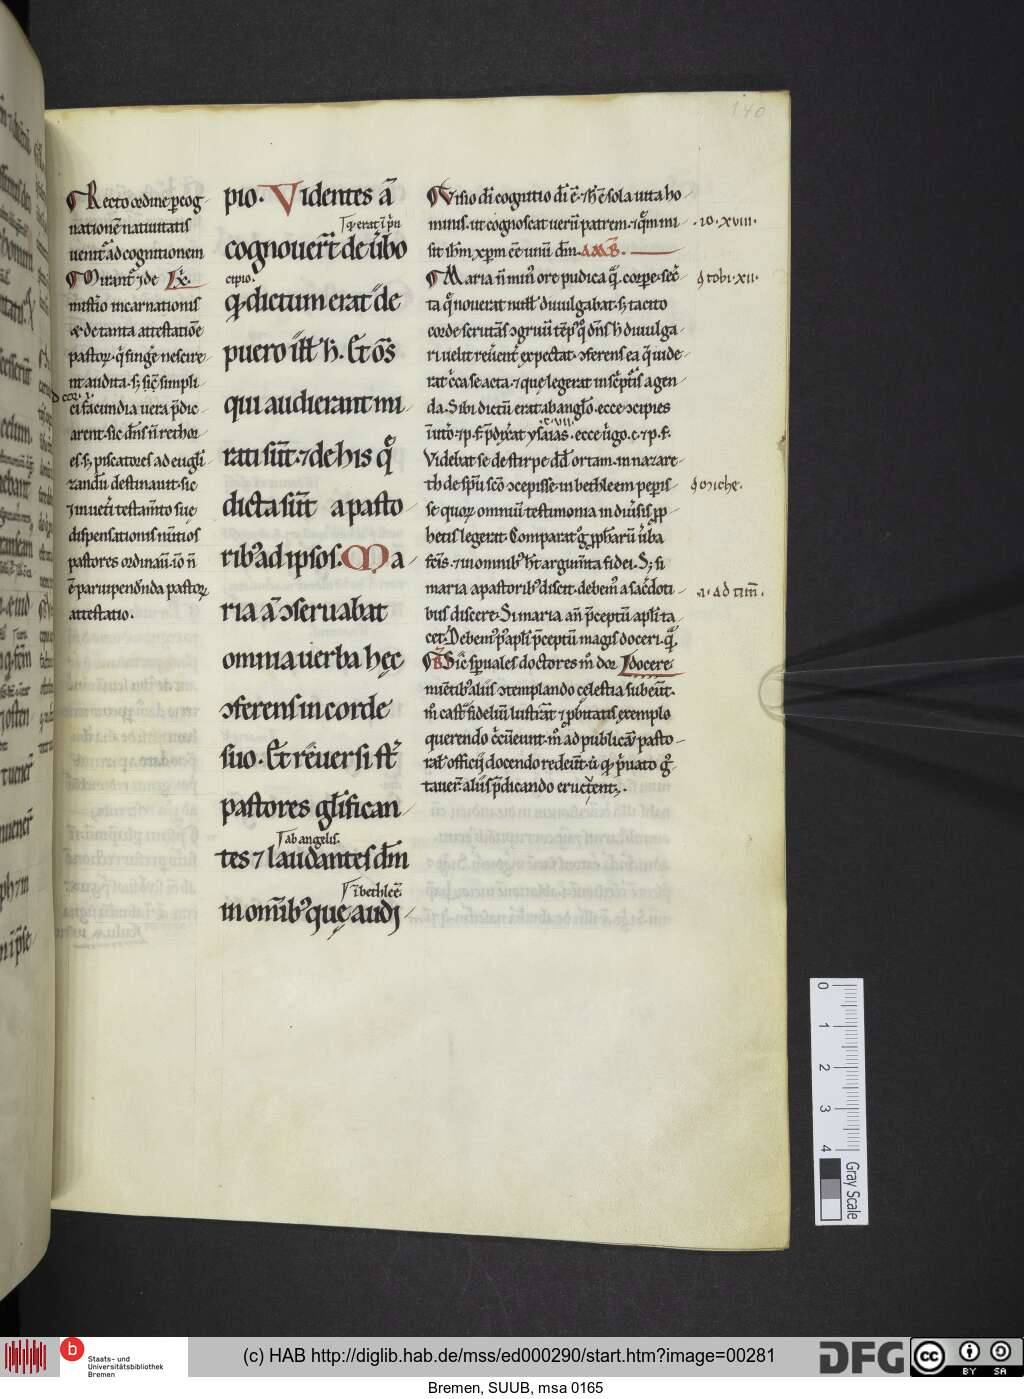 140
Recto ordine p cog
nationē natiuitatis
uenit̄ ad cognitionem
Mirant̄ ⁊ de Lx̄
mistio incarnationis
⁊ de tanta attestatiōe
pastoꝝ. q̄ finḡe nescire
nt audita. ſ; sic̄ simpli
ci facundia uera p̄dic
arent. sic dn̄s n̄ rethor
es. ſ; piscatores ad eugl̄i
zandū destinauit. sic
⁊ in uet̄i testam̄to sue
dispensationis nūtios
pastores ordinaū. iō n̄
ē paruipend̄nda pastoꝝ
attestatio.
pio. Videntes ā
⁊ q̄ erat ī p̄n
cognouer̄t de ūbo
cipio.
qđ dictum erat de
puero ill̄ h̄. Et ōs
qui audierant mi
rati sūt. ⁊ de his q̄
dicta sūt a pasto
ribꝰ ad ipsos. Ma
ria ā ɔseruabat
omnia uerba hęc
ɔferens in corde
suo. Et reuersi st̄
pastores glifican
ab angelis.
tes ⁊ laudantes dm̄
ī bethleē.
in om̄ibꝰ quę audi
Visio dī cognitio dī ē. h̄ ē sola uita ho
minis. ut cognoscat uerū patrem. ⁊ quē mi
sit ih̄m xp̄m eē unū dm̄. AMB.
Maria n̄ min̄ ore pudica q̄ corpe. sec̄
ta q̄ nouerat null̄ diuulgabat. ſ; tacito
corde scrutās ɔgruū tēpꝰ q̄ dn̄s h̄ diuulga
ri uelit reūent̄ expectat. ɔferens ea q̄ uide
rat cca se acta. ⁊ quę legerat in sc̄ptis agen
da. Sibi dictū erat ab angl̄o. ecce ɔcipies
c. vii.
in ūto. ⁊ p̄. f̄. p̄dix̄at ysaias. ecce ūgo. c. ⁊ p̄. f̄.
Videbat se de stirpe dd̄ ortam. in nazare
th de spū scō ɔcepisse. in bethleem pep̄is
se quoꝝ omniū testimonia in diūsis pp̄
hetis legerat. Comparat ḡ pp̄harū ūba
fc̄is. ⁊ in omnibꝰ h̄t argum̄ta fidei. S; si
maria a pastoribꝰ discit. debemꝰ a sac̄doti
bus discere. Si maria an̄ p̄ceptū apl̄i ta
cet. Debemꝰ pꝰ apl̄i p̄ceptū magis doceri. q̄
B̄ Sic̄ sp̄uales doctores m̄ dor̄ L docere
mētibꝰ aliis ɔtemplando cęlestia subeūt.
m̄ cast̄ fidelium lustrāt ⁊ p̄bitatis exemplo
querendo c̄cūeunt. m̄ ad publicā pasto
rał officij docendo redeūt. ū qđ p̄uato ḡ
tauer̄ aliis p̄dicando eructent.
.IO. xviii.
ɋ tobi. xii.
ɋ oziche.
.i. Ad tim̄.
0
1
2
3
4
Gray Scale
b
Staats- und
Universitätsbibliothek
Bremen
(c) HAB http://diglib.hab.de/mss/ed000290/start.htm?image=00281
DFG
cc
BY SA
Bremen, SUUB, msa 0165